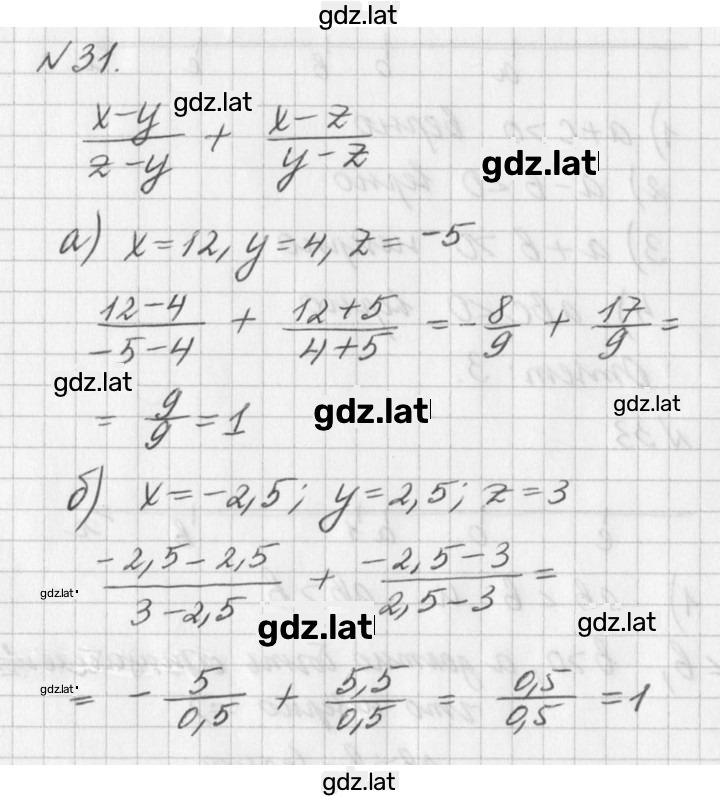 gdz.lat
N 31.
(x-y)/(z-y) + (x-z)/(y-z)
gdz.lat
gdz.lat
а) x=12, y=4, z=-5
(12-4)/(-5-4) + (12+5)/(4+5) = -8/9 + 17/9 =
gdz.lat
= 9/9 = 1
gdz.lat
gdz.lat
б) x=-2,5; y=2,5; z=3
(-2,5-2,5)/(3-2,5) + (-2,5-3)/(2,5-3) =
gdz.lat
gdz.lat
gdz.lat
gdz.lat
= -5/0,5 + 5,5/0,5 = 0,5/0,5 = 1
gdz.lat